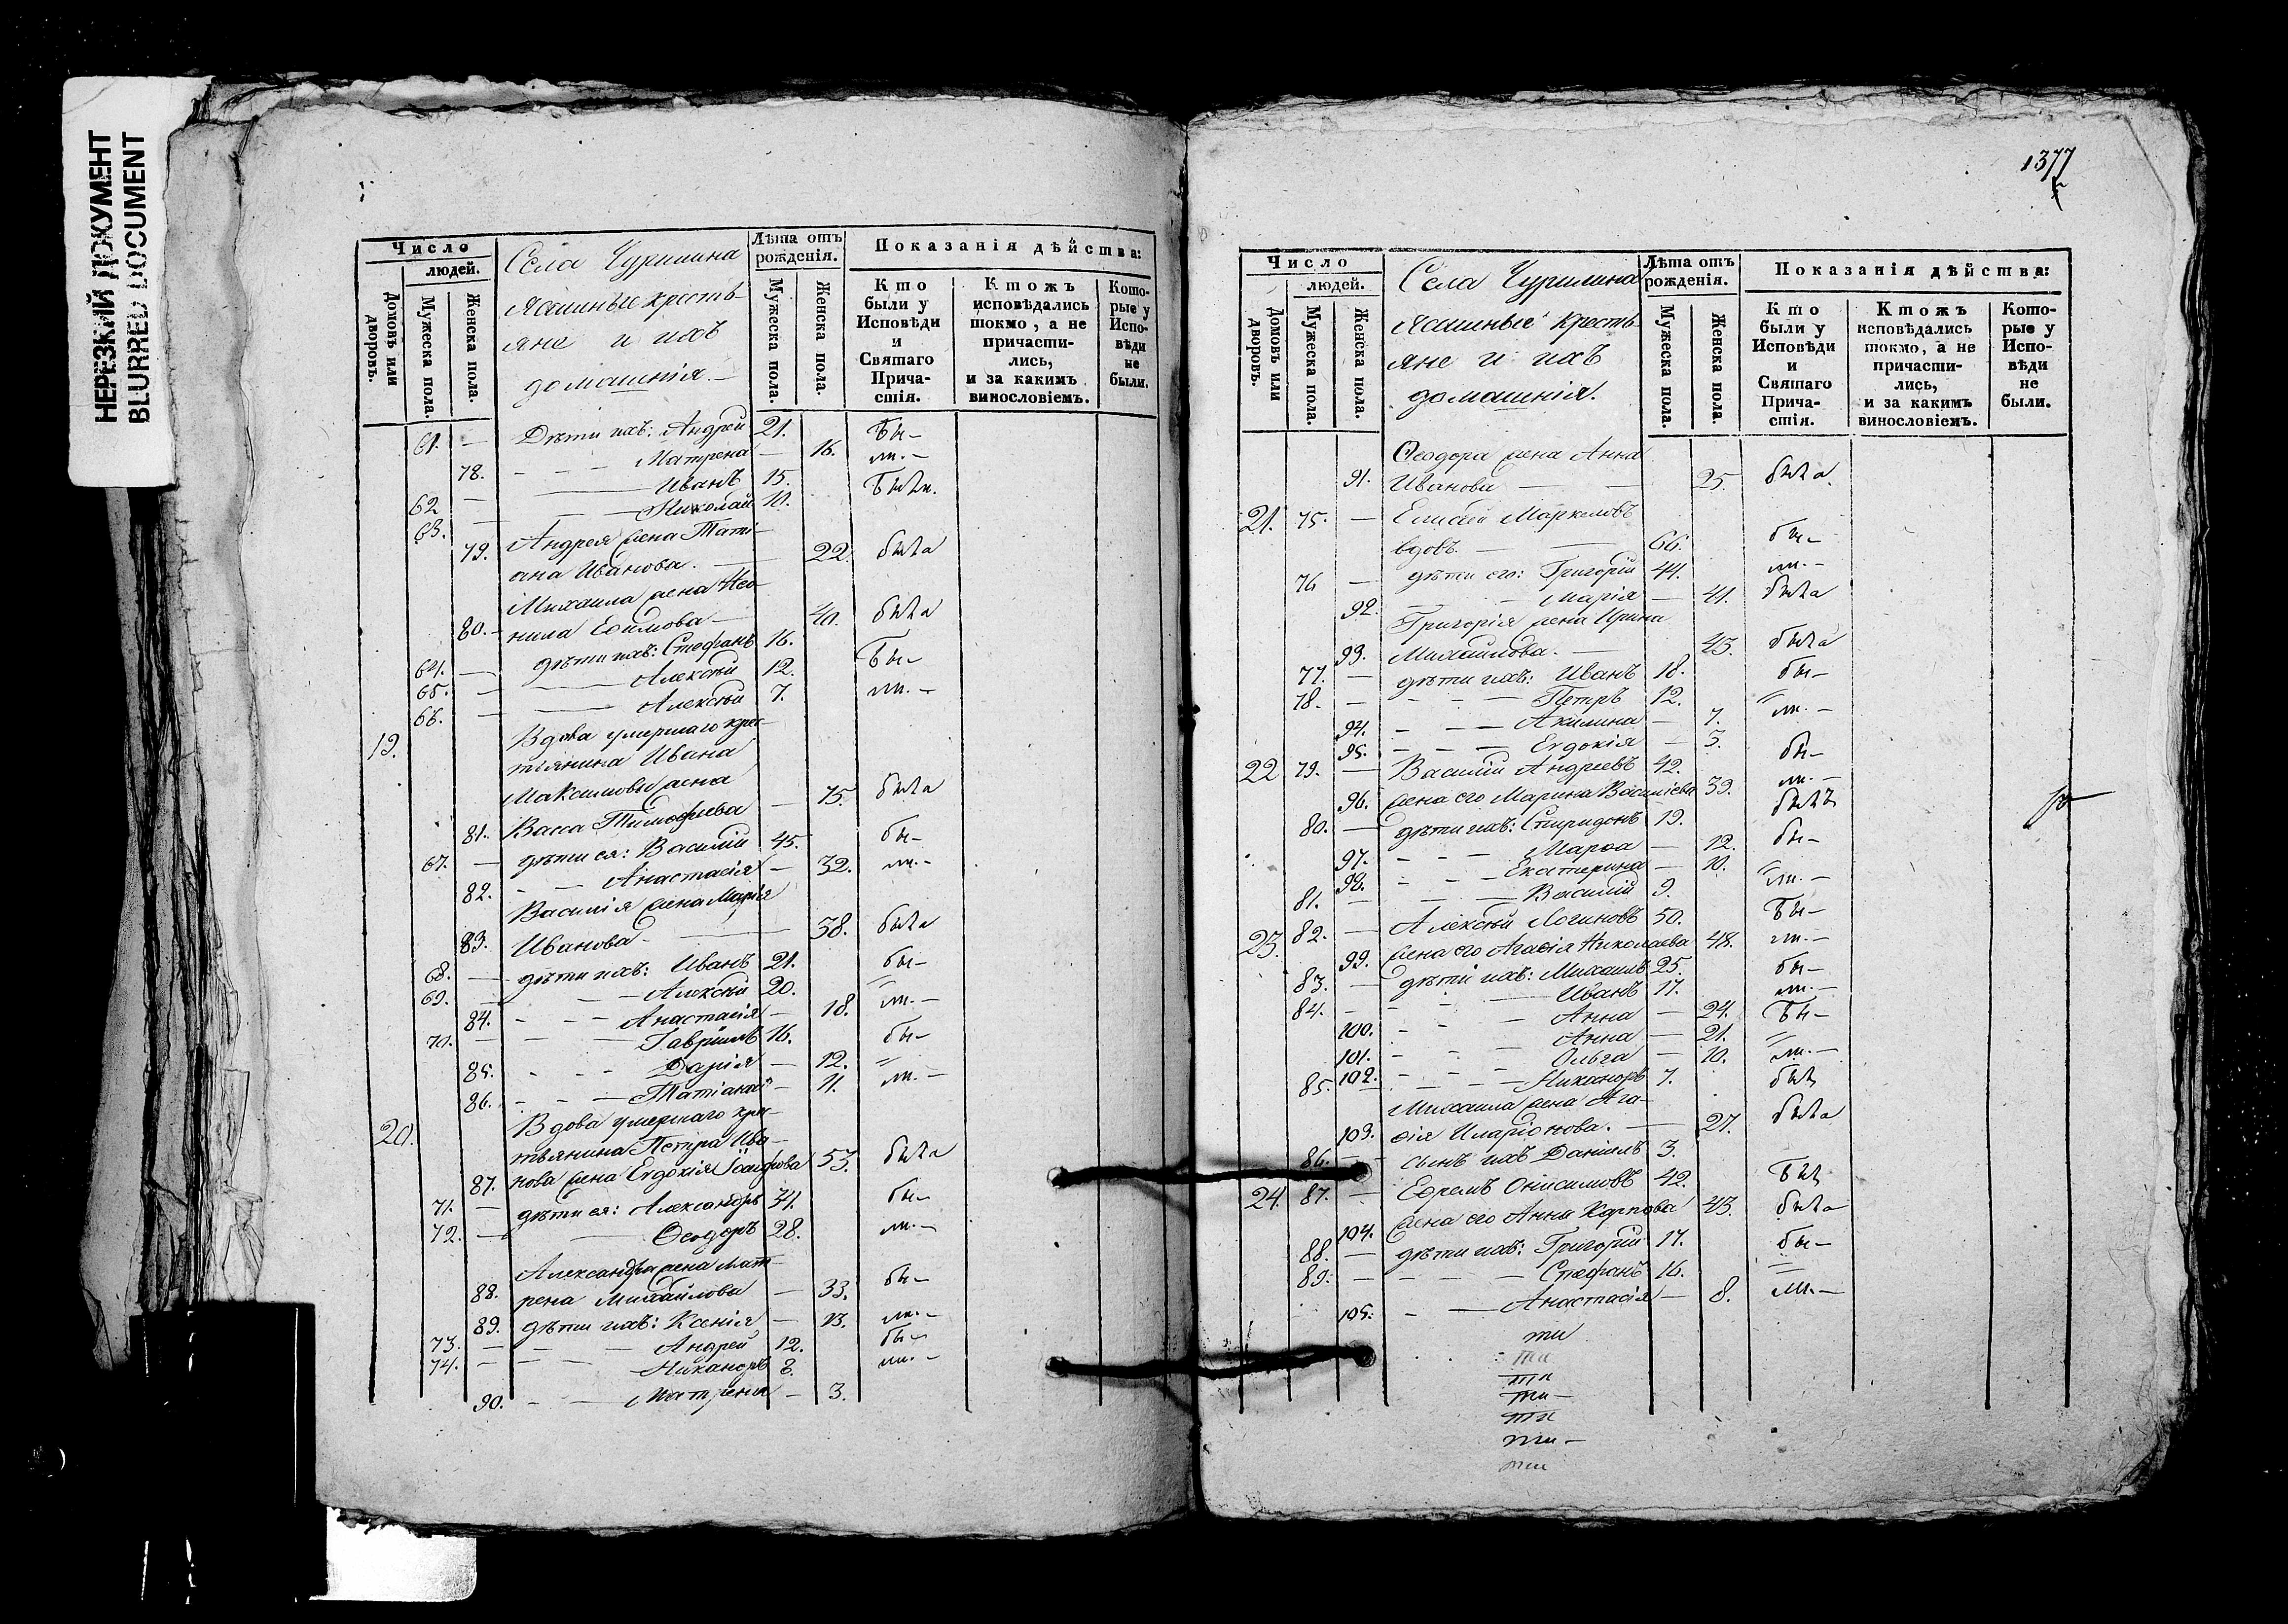 НЕРЕЗКИЙ ДОКУМЕНТ
BLURRED DOCUMENT
Число
людей.
Домовъ или дворовъ.
Мужеска пола.
Женска пола.
Села Чурилина
Ясашные кресть-
яне и ихъ
домашнія.—
Лѣта отъ рожденія.
Мужеска пола.
Женска пола.
Показанія дѣйства:
Кто были у Исповѣди и Святаго Причастія.
Ктожъ исповѣдались токмо, а не причасти-лись, и за какимъ винословіемъ.
Кото-рые у Испо-вѣди не были.
61. — Дѣти ихъ: Андрей 21. бы-
78. — — — Матрена — 16. ли.—
62 — — Иванъ 15. были.
63. — — Николай 10.
79. Андрея жена Тати-
ана Иванова. — 22. была
Михаила жена Нео-
80. — нила Ефимова — 40. была
64. — дѣти ихъ: Стефанъ 16. бы-
65. — — Алексѣй 12.
66. — — Алексѣй 7. ли.—
19. Вдова умершаго кре-
стьянина Ивана
Максимова жена
81. Васса Тимофеева — 75. была
67. — дѣти ея: Василій 45. бы-
82. — — Анастасія — 32. ли.—
Василія жена Марія
83. Иванова — 38. была
68. — дѣти ихъ: Иванъ 21. бы-
69. — — Алексѣй 20.
84. — — Анастасія — 18. ли.—
70. — — Гавріилъ 16. бы-
85. — — Дарія — 12.
86. — — Татіана — 11. ли.—
20. Вдова умершаго кре-
стьянина Петра Ива-
87. нова жена Евдокія Іосифова 53. была
71. — дѣти ея: Александръ 34. бы-
72. — Ѳеодоръ 28. ли.—
Александра жена Мат-
88. рена Михайлова — 33. бы-
89. дѣти ихъ: Ксенія — 13. ли.—
73. — — Андрей 12. бы-
74. — — Никаноръ 8. ли.—
90. — — Матрена — 3.
1377
Число
людей.
Домовъ или дворовъ.
Мужеска пола.
Женска пола.
Села Чурилина
Ясашные кресть-
яне и ихъ
домашнія.
Лѣта отъ рожденія.
Мужеска пола.
Женска пола.
Показанія дѣйства:
Кто были у Исповѣди и Святаго Прича-стія.
Ктожъ исповѣдались токмо, а не причасти-лись, и за какимъ винословіемъ.
Кото-рые у Испо-вѣди не были.
Ѳеодора жена Анна
91. Иванова — — 25. была
21. 75. — Маркеловъ
вдовъ. — — 66. бы-
76 — дѣти его: Григорій 44. ли.—
92. — Марія — 41. была
Григорія жена Ирина
93. Михайлова. — 43. была
77. — дѣти ихъ: Иванъ 18. бы-
78. — — — Петръ 12.
94. — — Акилина — 7. ли.—
95. — — — Евдокія — 3.
22 79. — Василій Андреевъ 42. бы-
96. жена его Марина Василіева 39. ли.—
80. — дѣти ихъ: Спиридонъ 19. былъ
97. — — Марѳа — 12. бы-
98. — — Екатерина — 10.
81. — — Василій 9. ли.—
23. 82. — Алексѣй Логиновъ 50. бы-
99. жена его Агафія Николаева 48. ли.—
83. — дѣти ихъ: Михаилъ 25. бы-
84. — — Иванъ 17. ли.—
100. — — Анна — 24. бы-
101. — — Анна — 21.
102. — — Ольга — 10. ли.—
85. — — Никаноръ 7. былъ
Михаила жена Ага-
103. ѳія Иларіонова. — 27. была
86. — сынъ ихъ Даніилъ 3.
24. 87. — Ефремъ Онисимовъ 42. былъ
104. жена его Анна Карпова 43. была
88. — дѣти ихъ: Григорій 17. бы-
89. — — Стефанъ 16.
105. — — Анастасія — 8. ли.—
ти
ти
ти
ти —
ти
ти —
ти